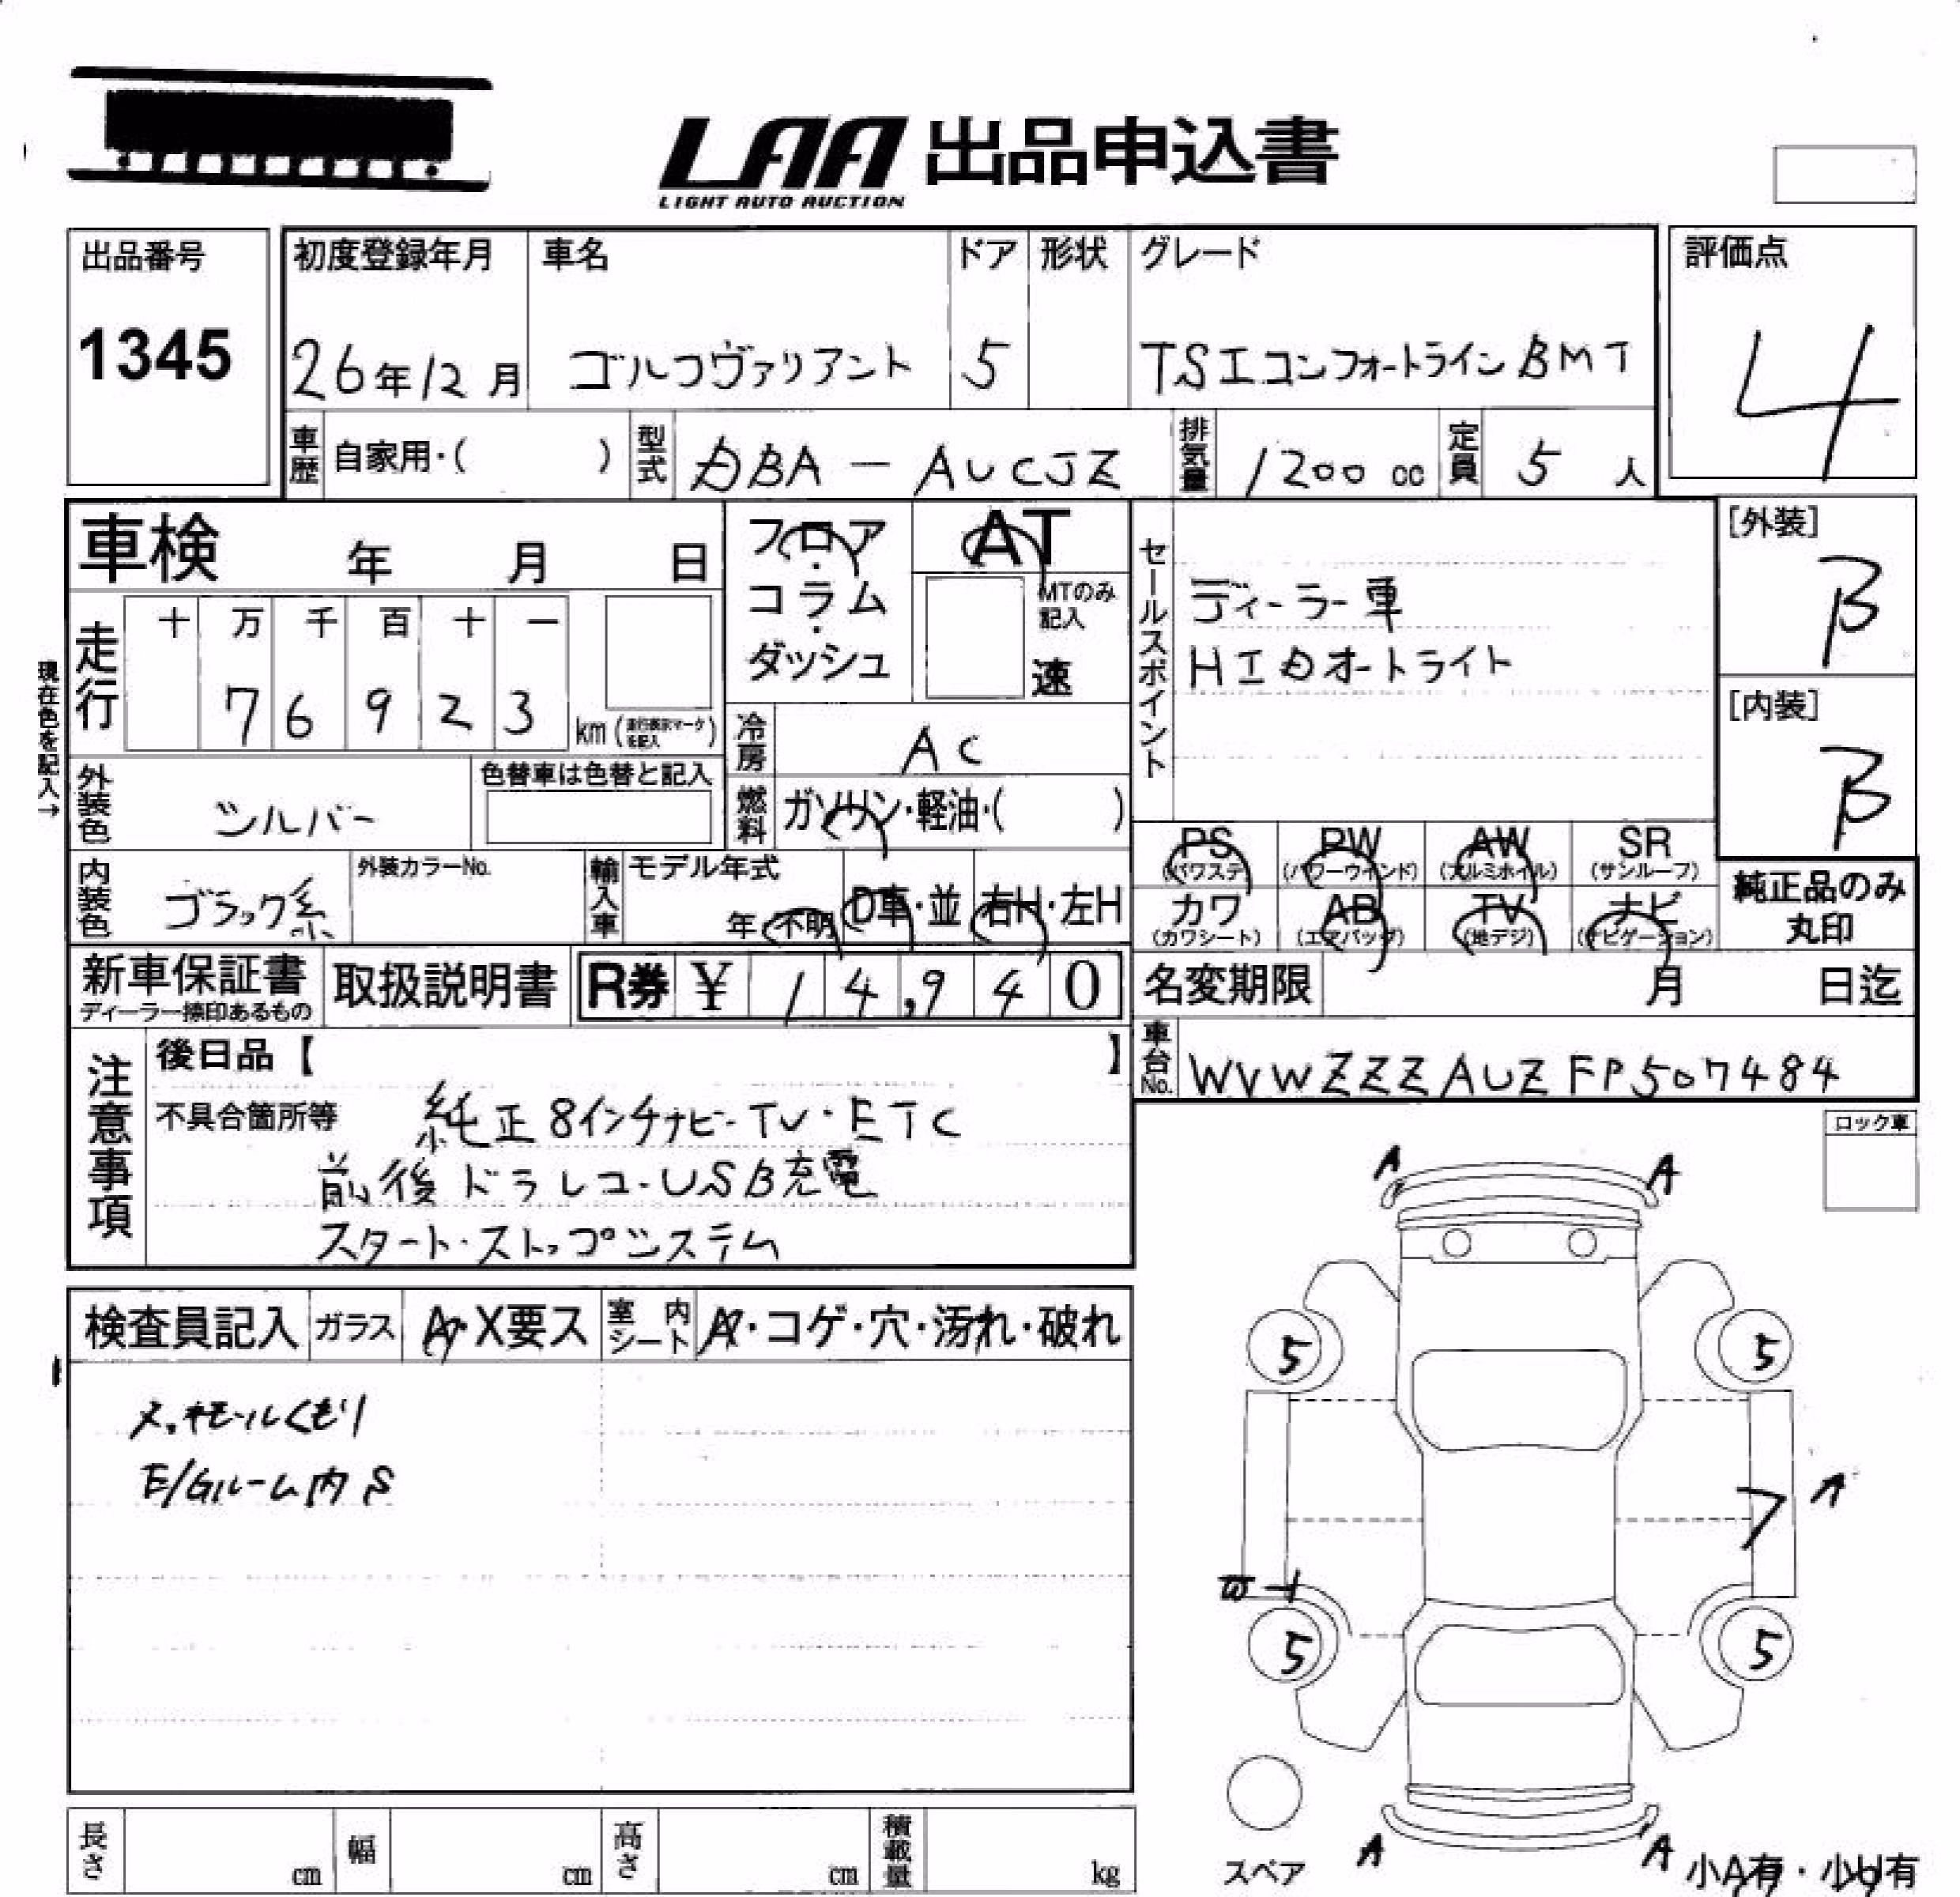 LAA 出品申込書
LIGHT AUTO AUCTION
出品番号
1345
初度登録年月
26年12月
車名
ゴルフヴァリアント
ドア
5
形状
グレード
TSIコンフォートラインBMT
評価点
4
車歴 自家用・( )
型式 DBA-AUCJZ
排気量 1200 cc
定員 5 人
車検 年 月 日
フロア・コラム・ダッシュ
AT
MTのみ記入
速
セールスポイント
ディーラー車
HIDオートライト
[外装]
B
[内装]
B
現在色を記入→
走行 十 万 千 百 十 一
7 6 9 2 3 km (走行表示マークを記入)
冷房 AC
外装色 シルバー
色替車は色替と記入
燃料 ガソリン・軽油・( )
PS (パワステ)
PW (パワーウインド)
AW (アルミホイル)
SR (サンルーフ)
カワ (カワシート)
AB (エアバッグ)
TV (地デジ)
ナビ (ナビゲーション)
純正品のみ丸印
内装色 ブラック系
外装カラーNo.
輸入車 モデル年式
年 不明 D車・並 右H・左H
新車保証書
ディーラー捺印あるもの
取扱説明書
R券 ¥ 14,940
名変期限 月 日迄
車台No. WVWZZZAUZFP507484
注意事項
後日品【 】
不具合箇所等
純正8インチナビ・TV・ETC
前後ドラレコ・USB充電
スタート・ストップシステム
ロック車
検査員記入 ガラス A・X要ス 室内シート A・コゲ・穴・汚れ・破れ
メッキモールくもり
E/Gルーム内S
A A
5 5
ア
5 5
A A
スペア
小A有・小U有
長さ cm 幅 cm 高さ cm 積載量 kg